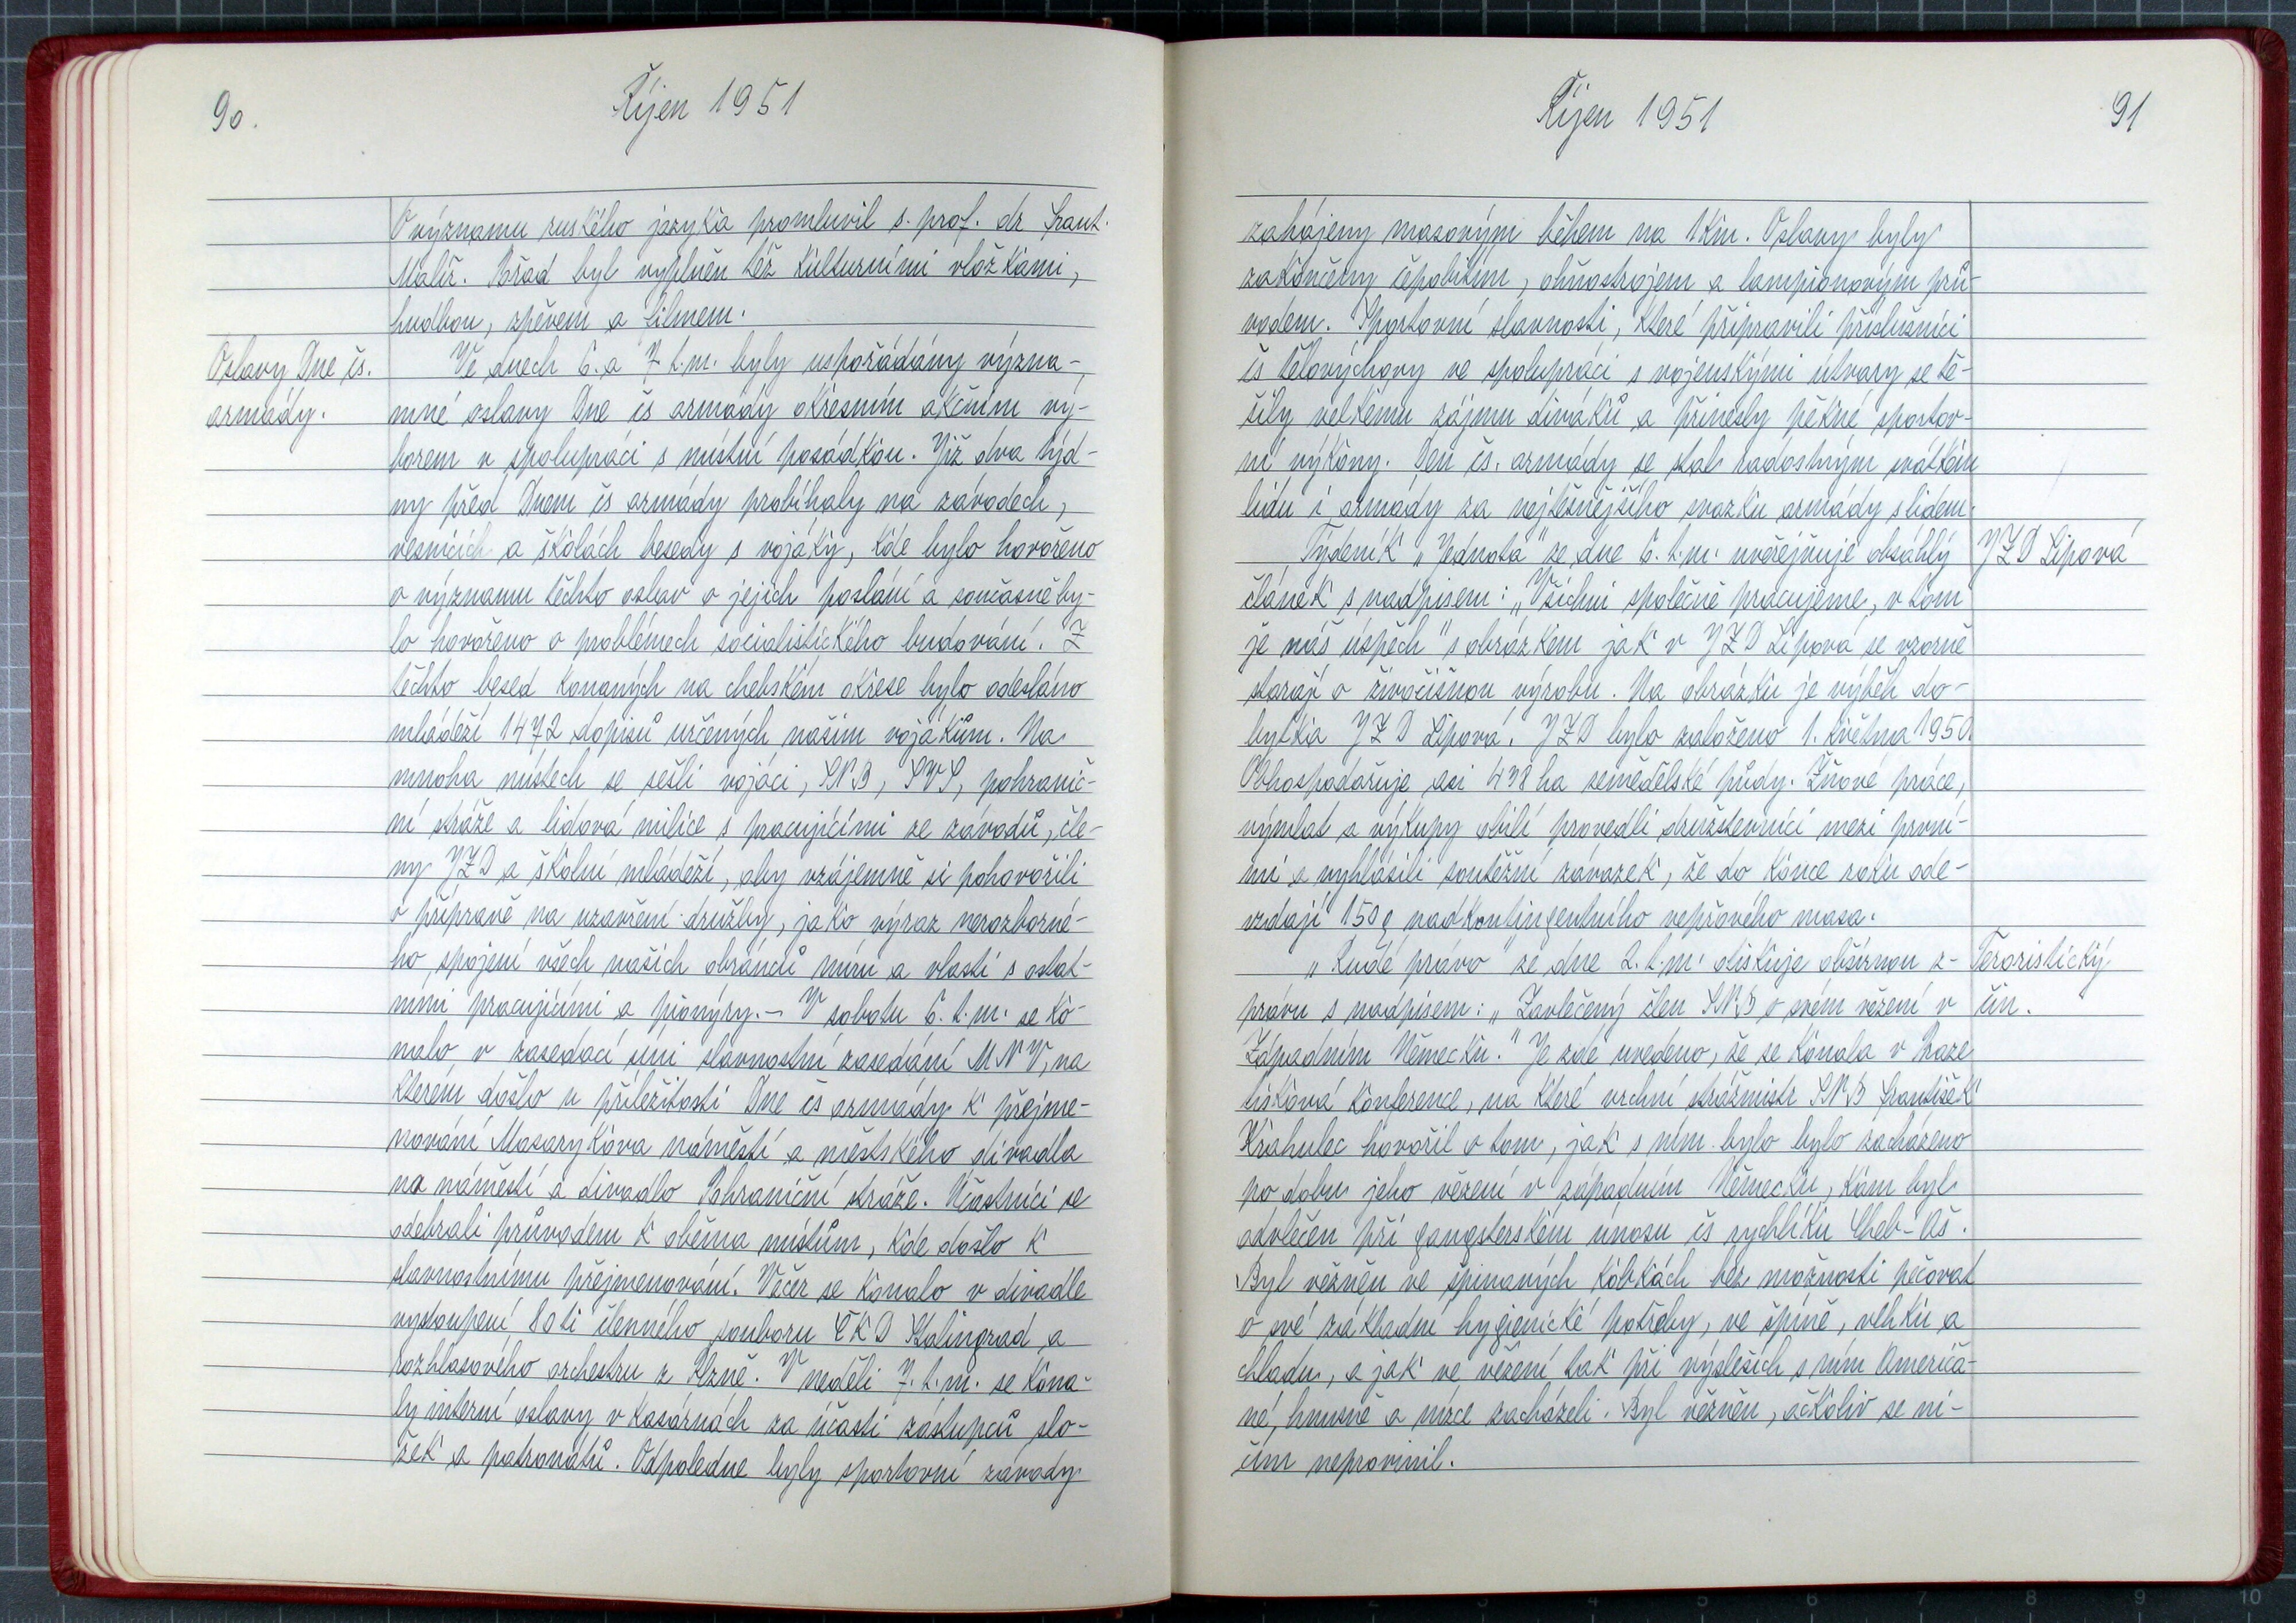 90.
Říjen 1951
O významu ruského jazyka promluvil s. prof. dr Frant.
Malíř. Pořad byl vyplněn též kulturními vložkami,
hudbou, zpěvem a filmem.
Oslavy Dne čs.
armády.
Ve dnech 6. a 7. t.m. byly uspořádány význa-
mné oslavy Dne čs armády okresním akčním vý-
borem v spolupráci s místní posádkou. Již dva týd-
ny před Dnem čs armády probíhaly na závodech,
vesnicích a školách besedy s vojáky, kde bylo hovořeno
o významu těchto oslav o jejich poslání a současně by-
lo hovořeno o problémech socialistického budování. Z
těchto besed konaných na chebském okrese bylo odesláno
mládeží 1472 dopisů určených našim vojákům. Na
mnoha místech se sešli vojáci, SNB, SVS, pohranič-
ní stráže a lidová milice s pracujícími ze závodů, čle-
ny JZD a školní mládeží, aby vzájemně si pohovořili
o přípravě na uzavření družby, jako výraz nerozborné-
ho spojení všech našich obránců míru a vlasti s ostat-
ními pracujícími a pionýry. - V sobotu 6. t.m. se ko-
nalo v zasedací síni slavnostní zasedání MNV, na
kterém došlo u příležitosti Dne čs armády k přejme-
nování Masarykova náměstí a městského divadla
na náměstí a divadlo Pohraniční stráže. Účastníci se
odebrali průvodem k oběma místům, kde došlo k
slavnostnímu přejmenování. Večer se konalo v divadle
vystoupení 80ti členného souboru ČKD Stalingrad a
rozhlasového orchestru z Plzně. V neděli 7. t.m. se kona-
ly interní oslavy v kasárnách za účasti zástupců slo-
žek a patronátů. Odpoledne byly sportovní závody
Říjen 1951
91
zahájeny masovým během na 1 km. Oslavy byly
zakončeny čepobitím, ohňostrojem a lampionovým prů-
vodem. Sportovní slavnosti, které připravili příslušníci
čs tělovýchovy ve spolupráci s vojenskými útvary se tě-
šily velkému zájmu diváků a přinesly pěkné sportov-
ní výkony. Den čs. armády se stal radostným svátkem
lidu i armády za nejtěsnějšího svazku armády s lidem.
Týdeník „Jednota" ze dne 6. t.m. uveřejňuje obsáhlý
JZD Lipová
článek s nadpisem: „Všichni společně pracujeme, v tom
je náš úspěch" s obrázkem jak v JZD Lipová se vzorně
starají o živočišnou výrobu. Na obrázku je výběh do-
bytka JZD Lipová. JZD bylo založeno 1. května 1950.
Obhospodařuje asi 438 ha zemědělské půdy. Žňové práce,
výmlat a výkupy obilí provedli družstevníci mezi první-
mi a vyhlásili soutěžní závazek, že do konce roku ode-
vzdají 150 q nadkontingentního vepřového masa.
„Rudé právo" ze dne 2. t.m. otiskuje obšírnou z-
Teroristický
právu s nadpisem: „Zavlečený člen SNB o svém věžení v
čin.
Západním Německu." Je zde uvedeno, že se konala v Praze
tisková konference, na které vrchní strážmistr SNB František
Krahulec hovořil o tom, jak s ním bylo bylo zacházeno
po dobu jeho vězení v západním Německu, kam byl
odvlečen při gangsterském únosu čs rychlíku Cheb-Aš.
Byl vězněn ve špinavých kobkách bez možnosti pečovat
o své základní hygienické potřeby, ve špíně, vlhku a
chladu, a jak ve vězení tak při výsleších s ním Američa-
né, hnusně a nízce zacházeli. Byl vězněn, ačkoliv se ni-
čím neprovinil.